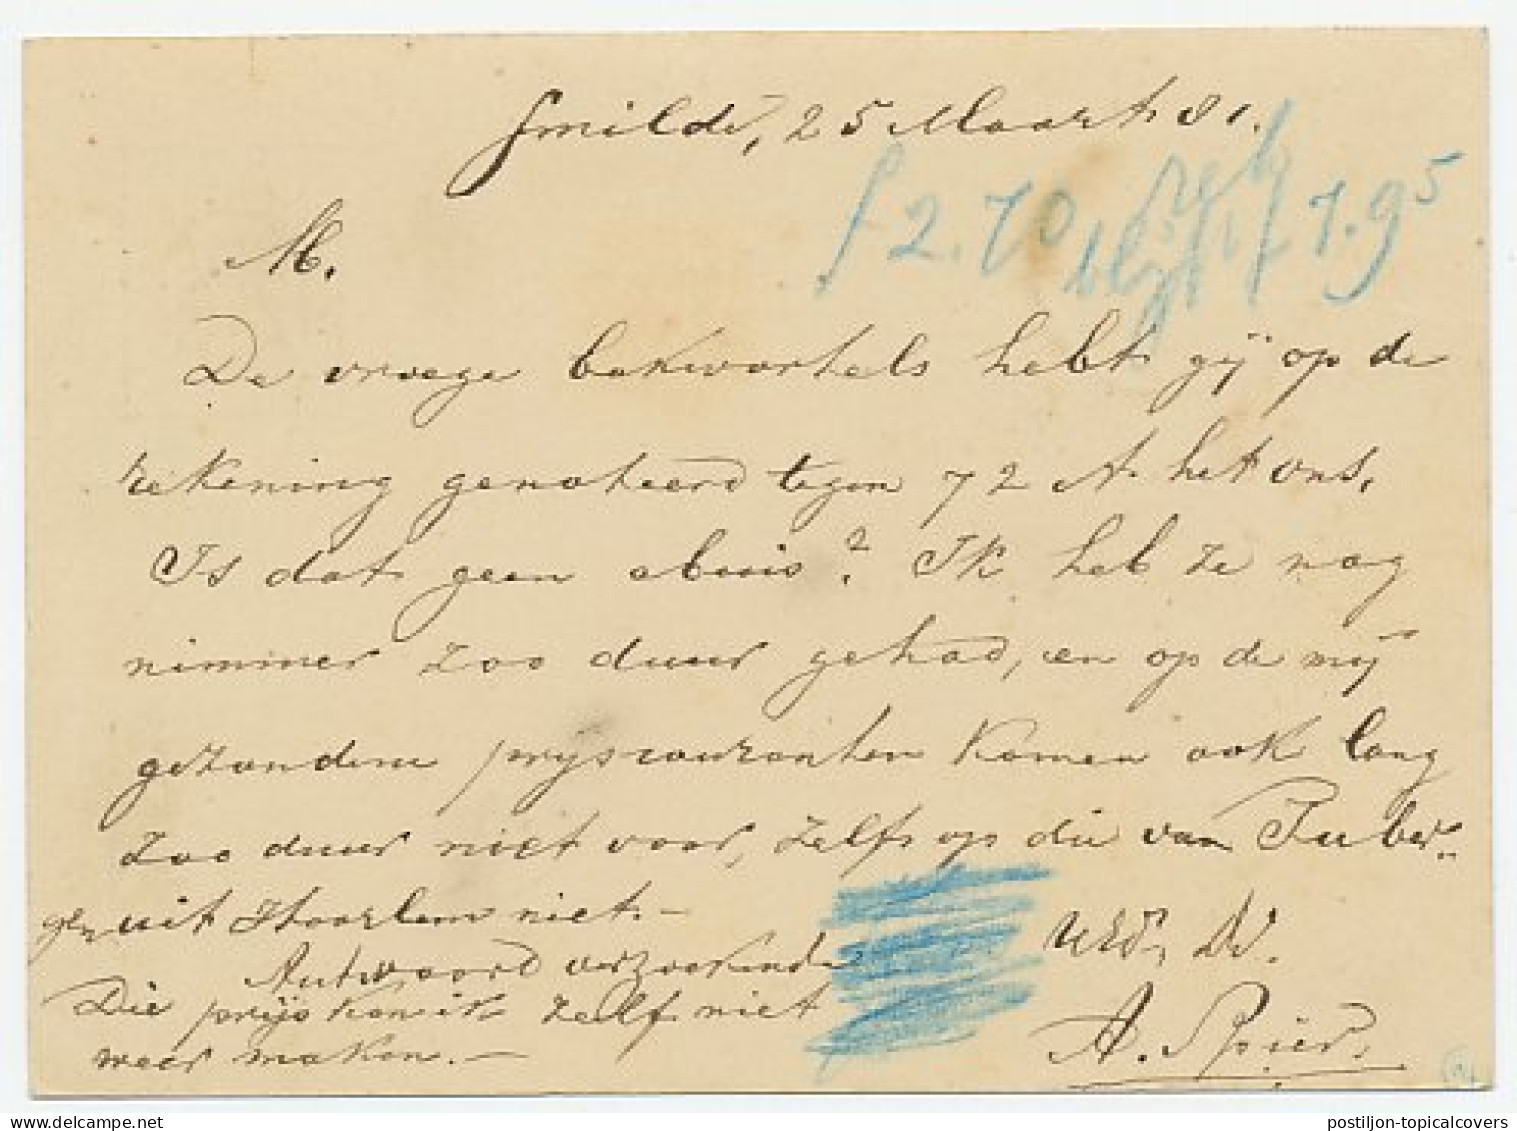 Smilde, 25 Maart 81.
f 2.70 blijft 7.95
M.
De vroege bakwortels hebt gij op de
rekening genoteerd tegen 72 ct. het ons.
Is dat geen abuis? Ik heb ze nog
nimmer zoo duur gehad, en op de mij
gezondene prijscouranten komen ook lang
zoo duur niet voor, zelfs op die van Tuber-
gen uit Haarlem niet. —
Antwoord verzoekende
UEd. Dr.
Die prijs kan ik zelf niet
weer maken. —
A. Spier.
delcampe.net
postiljon-topicalcovers